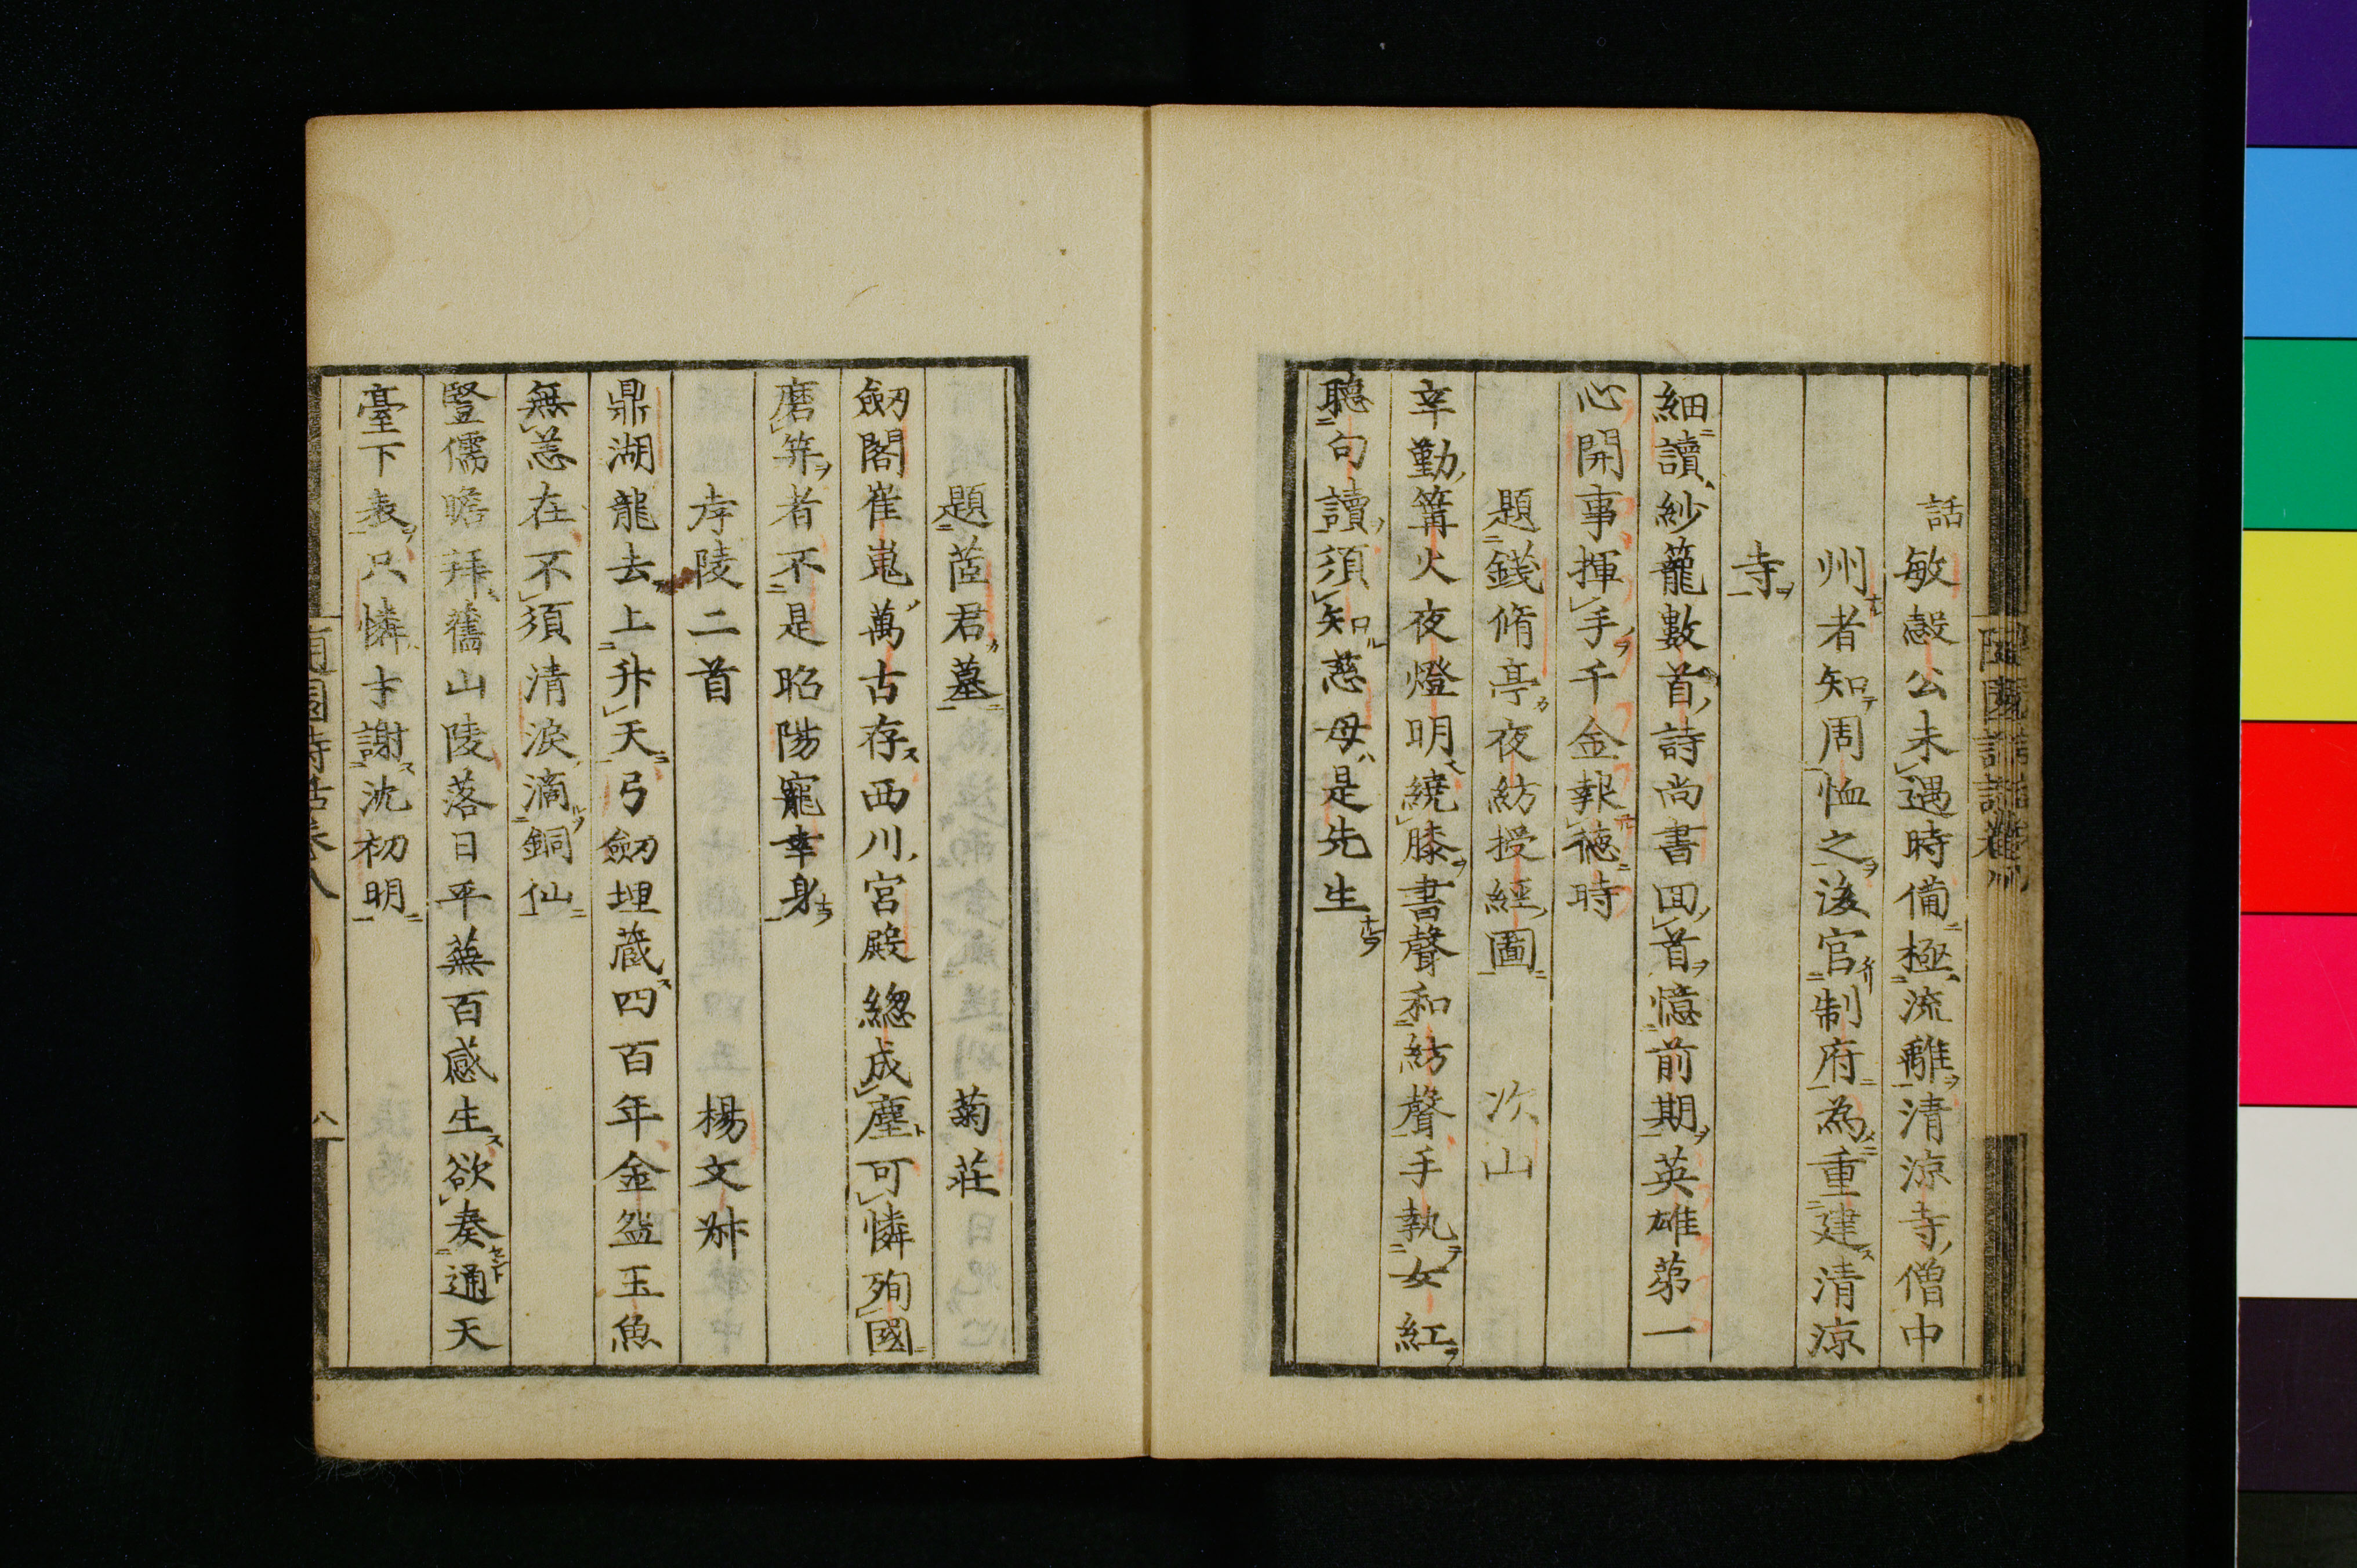 話
敏慤公未遇時備極流離清涼寺僧中
州者知周恤之後官制府為重建清涼
寺
細讀紗籠數首詩尚書回首憶前期英雄苐一
心開事揮手千金報德時
題錢脩亭夜紡授經圖 次山
辛勤篝火夜燈明繞膝書聲和紡聲手執女紅
聽句讀須知慈母是先生
題莅君墓 菊莊
劒閣崔嵬萬古存西川宮殿緫成塵可憐殉國
磨笄者不是昭陽寵幸身
孝陵二首 楊文叔
鼎湖龍去上升天弓劒埋藏四百年金盌玉魚
無恙在不須清淚滴銅仙
豎儒瞻拜舊山陵落日平蕪百感生欲奏通天
臺下表只憐才謝沈初明
隨園詩話卷八
八